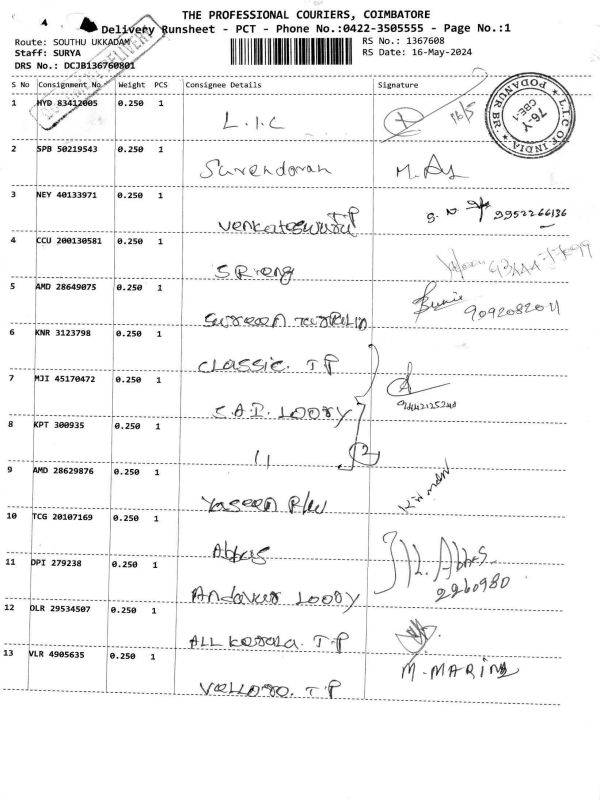 THE PROFESSIONAL COURIERS, COIMBATORE
Delivery Runsheet - PCT - Phone No.:0422-3505555 - Page No.:1
Route: SOUTHU UKKADAM
RS No.: 1367608
Staff: SURYA
RS Date: 16-May-2024
DRS No.: DCJB136760801
S No Consignment No Weight PCS Consignee Details Signature
1 HYD 83412005 0.250 1 L.I.C 16/5
L.I.C OF INDIA PODANUR BR. 76-Y CBE-1
2 SPB 50219543 0.250 1 Surendoran
3 NEY 40133971 0.250 1 Venkateswara TP 9952266136
4 CCU 200130581 0.250 1 SPreng
5 AMD 28649075 0.250 1 9092082011
6 KNR 3123798 0.250 1 CLASSIC. TP
7 MJI 45170472 0.250 1 LOORY
8 KPT 300935 0.250 1 11 2
9 AMD 28629876 0.250 1 Yaseen
10 TCG 20107169 0.250 1 Abbas
11 DPI 279238 0.250 1 Andavar LOORY 2260980
12 DLR 29534507 0.250 1 ALL Kerala. TP
13 VLR 4905635 0.250 1 TP M. MARIN